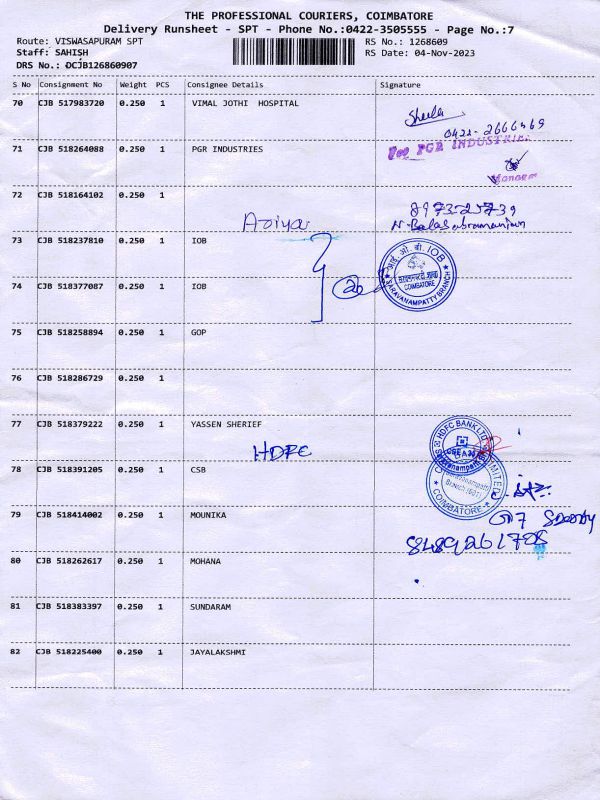 THE PROFESSIONAL COURIERS, COIMBATORE
Delivery Runsheet - SPT - Phone No.:0422-3505555 - Page No.:7
Route: VISWASAPURAM SPT
RS No.: 1268609
Staff: SAHISH
RS Date: 04-Nov-2023
DRS No.: DCJB126860907
S No Consignment No Weight PCS Consignee Details Signature
70 CJB 517983720 0.250 1 VIMAL JOTHI HOSPITAL
Sheela
0422-2666469
71 CJB 518264088 0.250 1 PGR INDUSTRIES
For PGR INDUSTRIES
Manager
72 CJB 518164102 0.250 1
N. Balasubramaniam
73 CJB 518237810 0.250 1 IOB
आई.ओ.बी. IOB
COIMBATORE
SARAVANAMPATTY BRANCH
74 CJB 518377087 0.250 1 IOB
75 CJB 518258894 0.250 1 GOP
76 CJB 518286729 0.250 1
77 CJB 518379222 0.250 1 YASSEN SHERIEF
HDFC BANK LTD
HDFC
78 CJB 518391205 0.250 1 CSB
COIMBATORE
79 CJB 518414002 0.250 1 MOUNIKA
80 CJB 518262617 0.250 1 MOHANA
81 CJB 518383397 0.250 1 SUNDARAM
82 CJB 518225400 0.250 1 JAYALAKSHMI